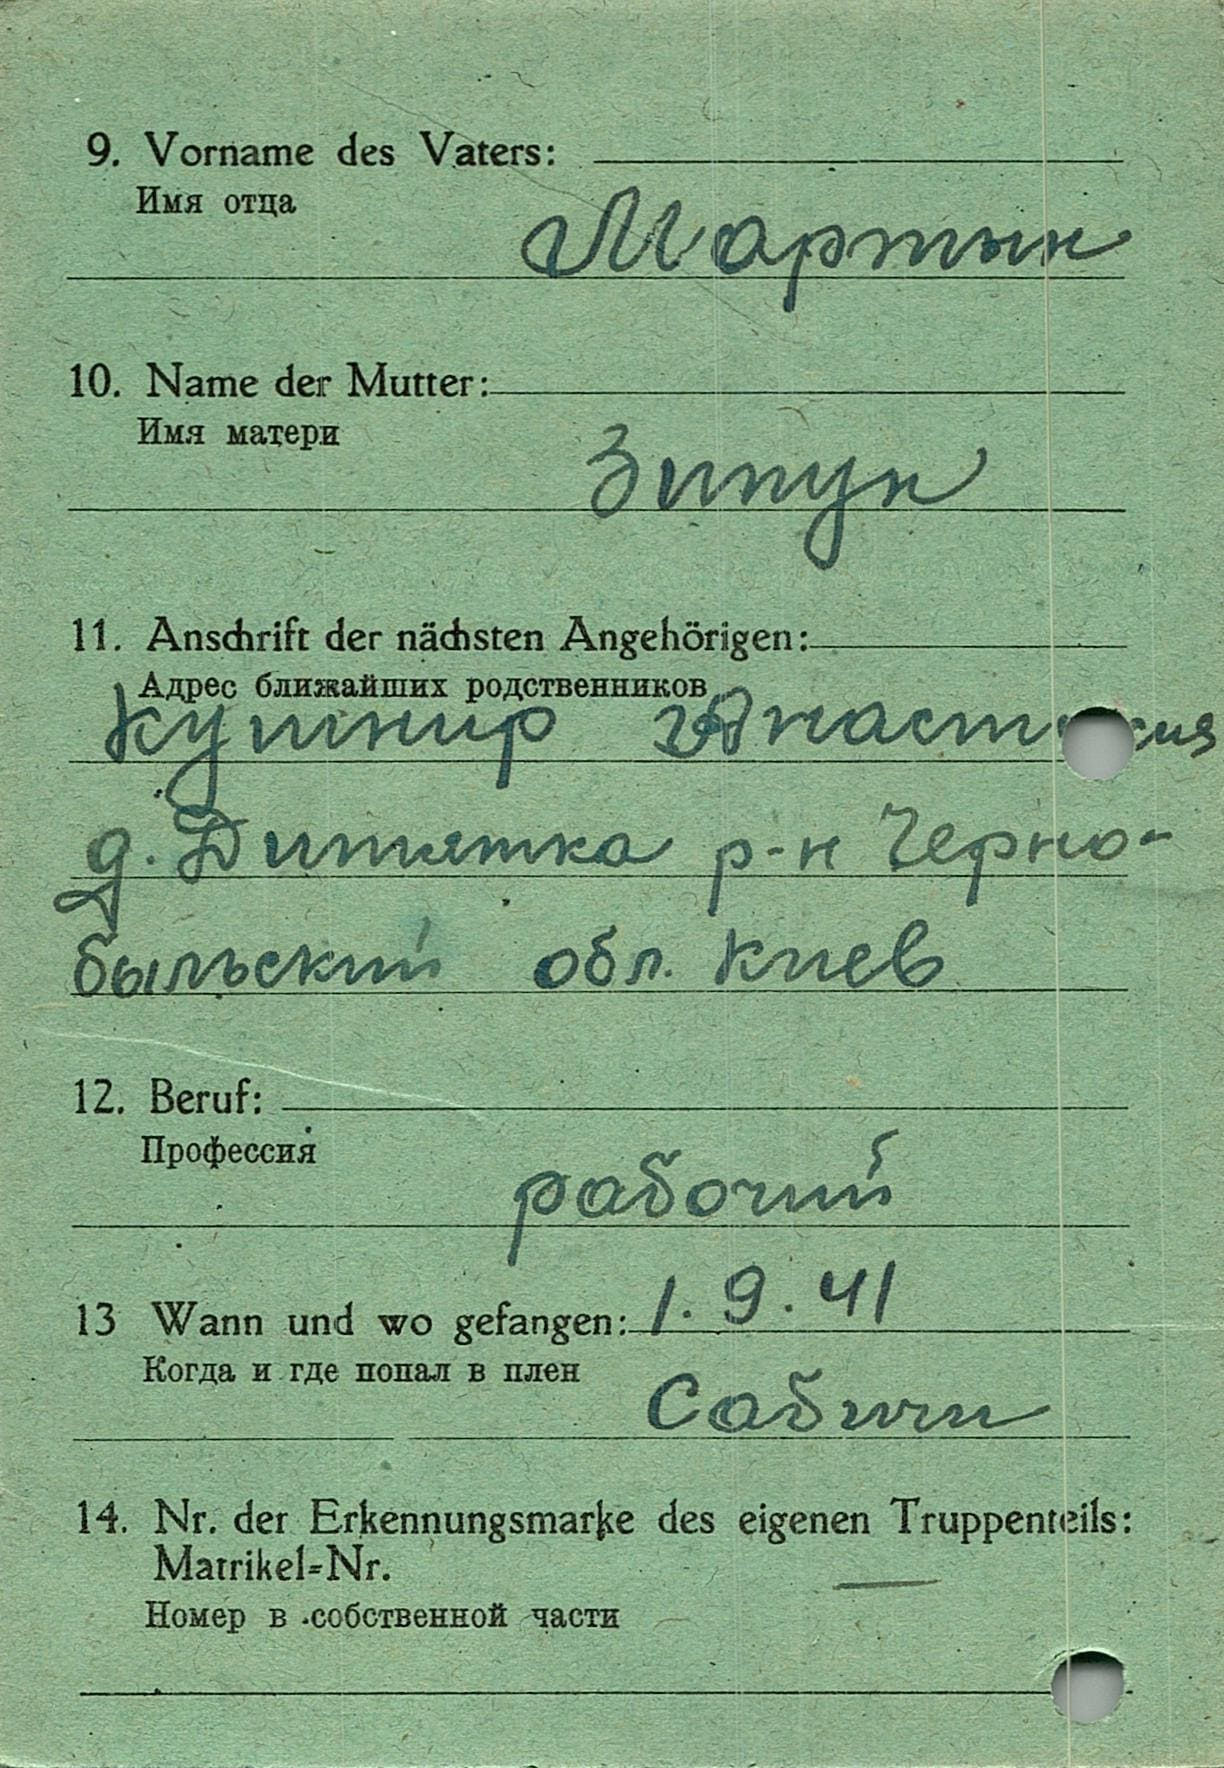 9. Vorname des Vaters:
Имя отца
Мартын
10. Name der Mutter:
Имя матери
Зипун
11. Anschrift der nächsten Angehörigen:
Адрес ближайших родственников
Кушнир Анастасия
д. Дитятка р-н Черно-
быльский обл. Киев
12. Beruf:
Профессия
рабочий
13 Wann und wo gefangen: 1. 9. 41
Когда и где попал в плен
Сабичи
14. Nr. der Erkennungsmarke des eigenen Truppenteils:
Matrikel=Nr. —
Номер в собственной части